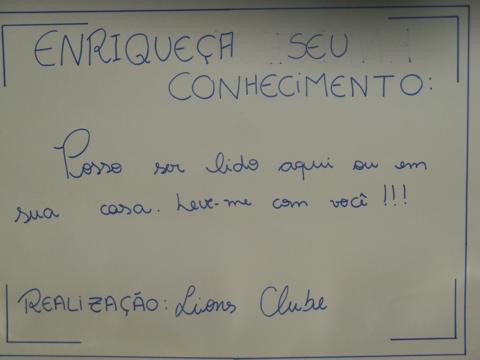 ENRIQUEÇA SEU
CONHECIMENTO:
Posso ser lido aqui ou em
sua casa. Leve-me com você!!!
REALIZAÇÃO: Lions Clube